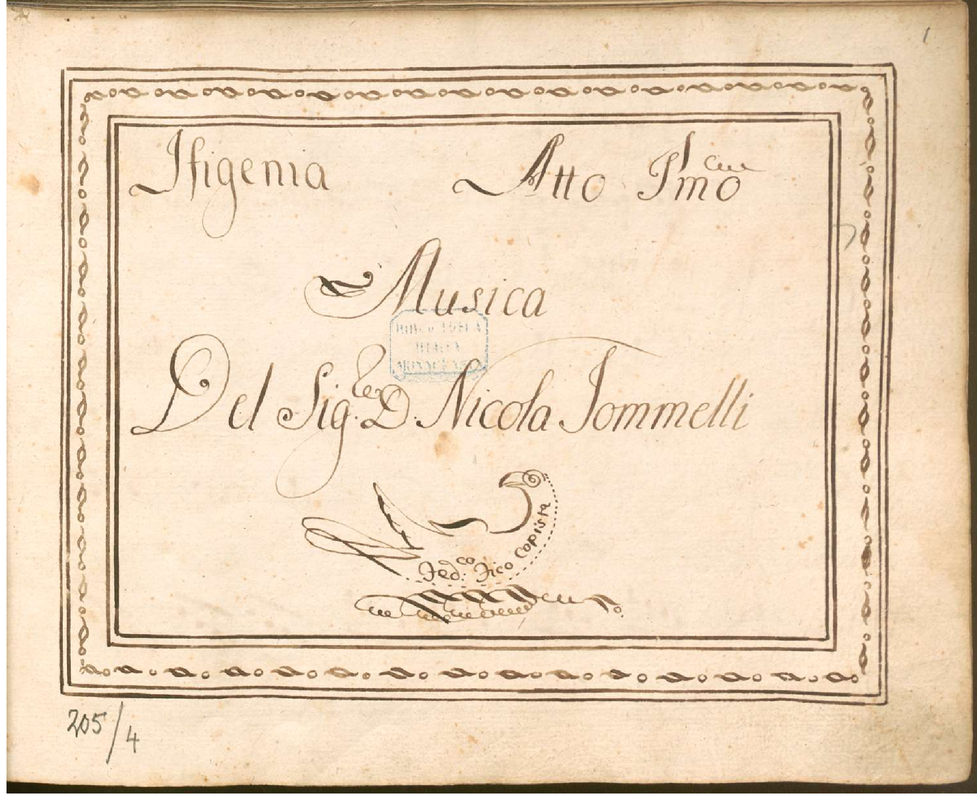 1
Ifigenia Atto Pmo
Musica
Del Sig.r D. Nicola Jommelli
Fed.co Fico Copista
205/4